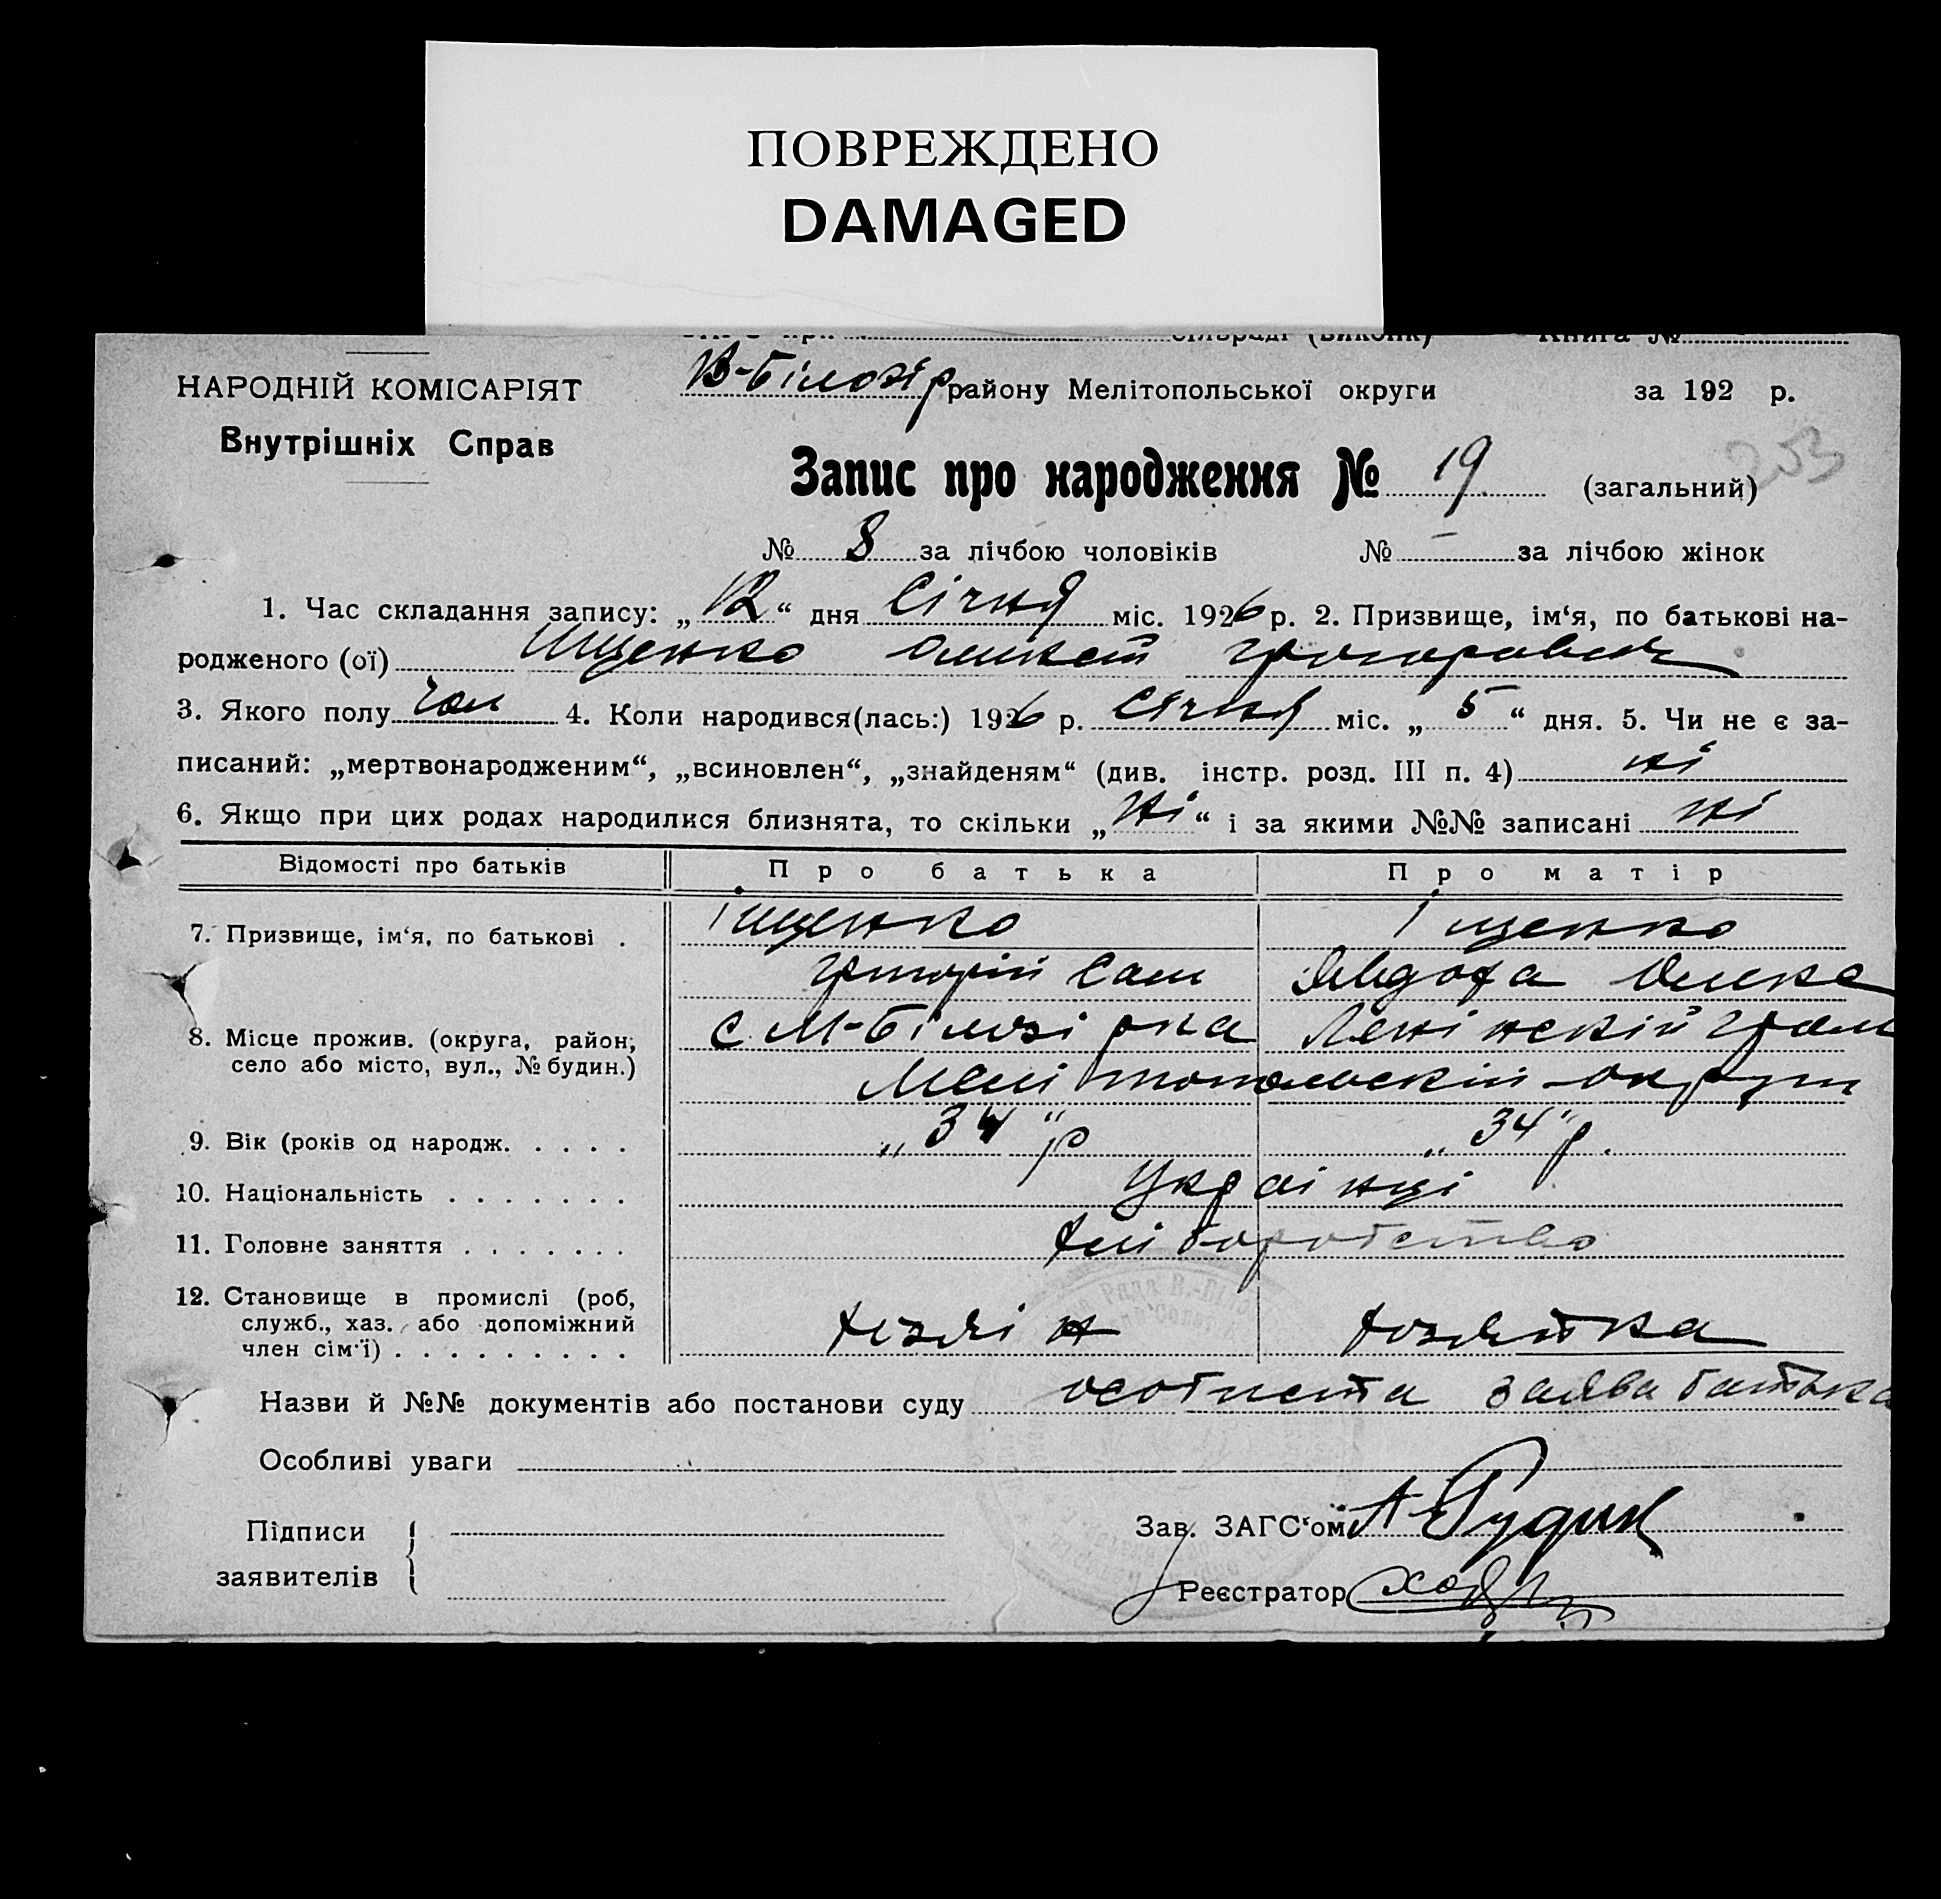 ПОВРЕЖДЕНО
DAMAGED
сільраді (виконк) Книга №
НАРОДНІЙ КОМІСАРІЯТ
Внутрішніх Справ
В-Білозір району Мелітопольської округи за 192 р.
Запис про народження № 19 (загальний)
203
№ 8 за лічбою чоловіків № – за лічбою жінок
1. Час складання запису: „12“ дня Січня міс. 1926 р. 2. Призвище, ім‘я, по батькові на-
родженого (ої) Ищенко
3. Якого полу чол 4. Коли народився(лась:) 1926 р. Січня міс. „5“ дня. 5. Чи не є за-
писаний: „мертвонародженим“, „всиновлен“, „знайденям“ (див. інстр. розд. III п. 4) ні
6. Якщо при цих родах народилися близнята, то скільки „Ні“ і за якими №№ записані ні
Відомості про батьків Про батька Про матір
7. Призвище, ім‘я, по батькові . Іщенко Іщенко
Григорій Сам Явдоха Олекс
8. Місце прожив. (округа, район, село або місто, вул., № будин.) с М-Білозірка Ленінскій грам
Мелітопольскій округи
9. Вік (років од народж. . . . . „34“ р „34“ р.
10. Національність . . . . . . . Українці
11. Головне заняття . . . . . . . хліборобство
12. Становище в промислі (роб,
служб., хаз. або допоміжний
член сім‘ї) . . . . . . . . . хазяін хозяйка
Назви й №№ документів або постанови суду особиста заява батька
Особливі уваги
Підписи
заявителів
Зав. ЗАГС‘ом А Рудик
Реєстратор